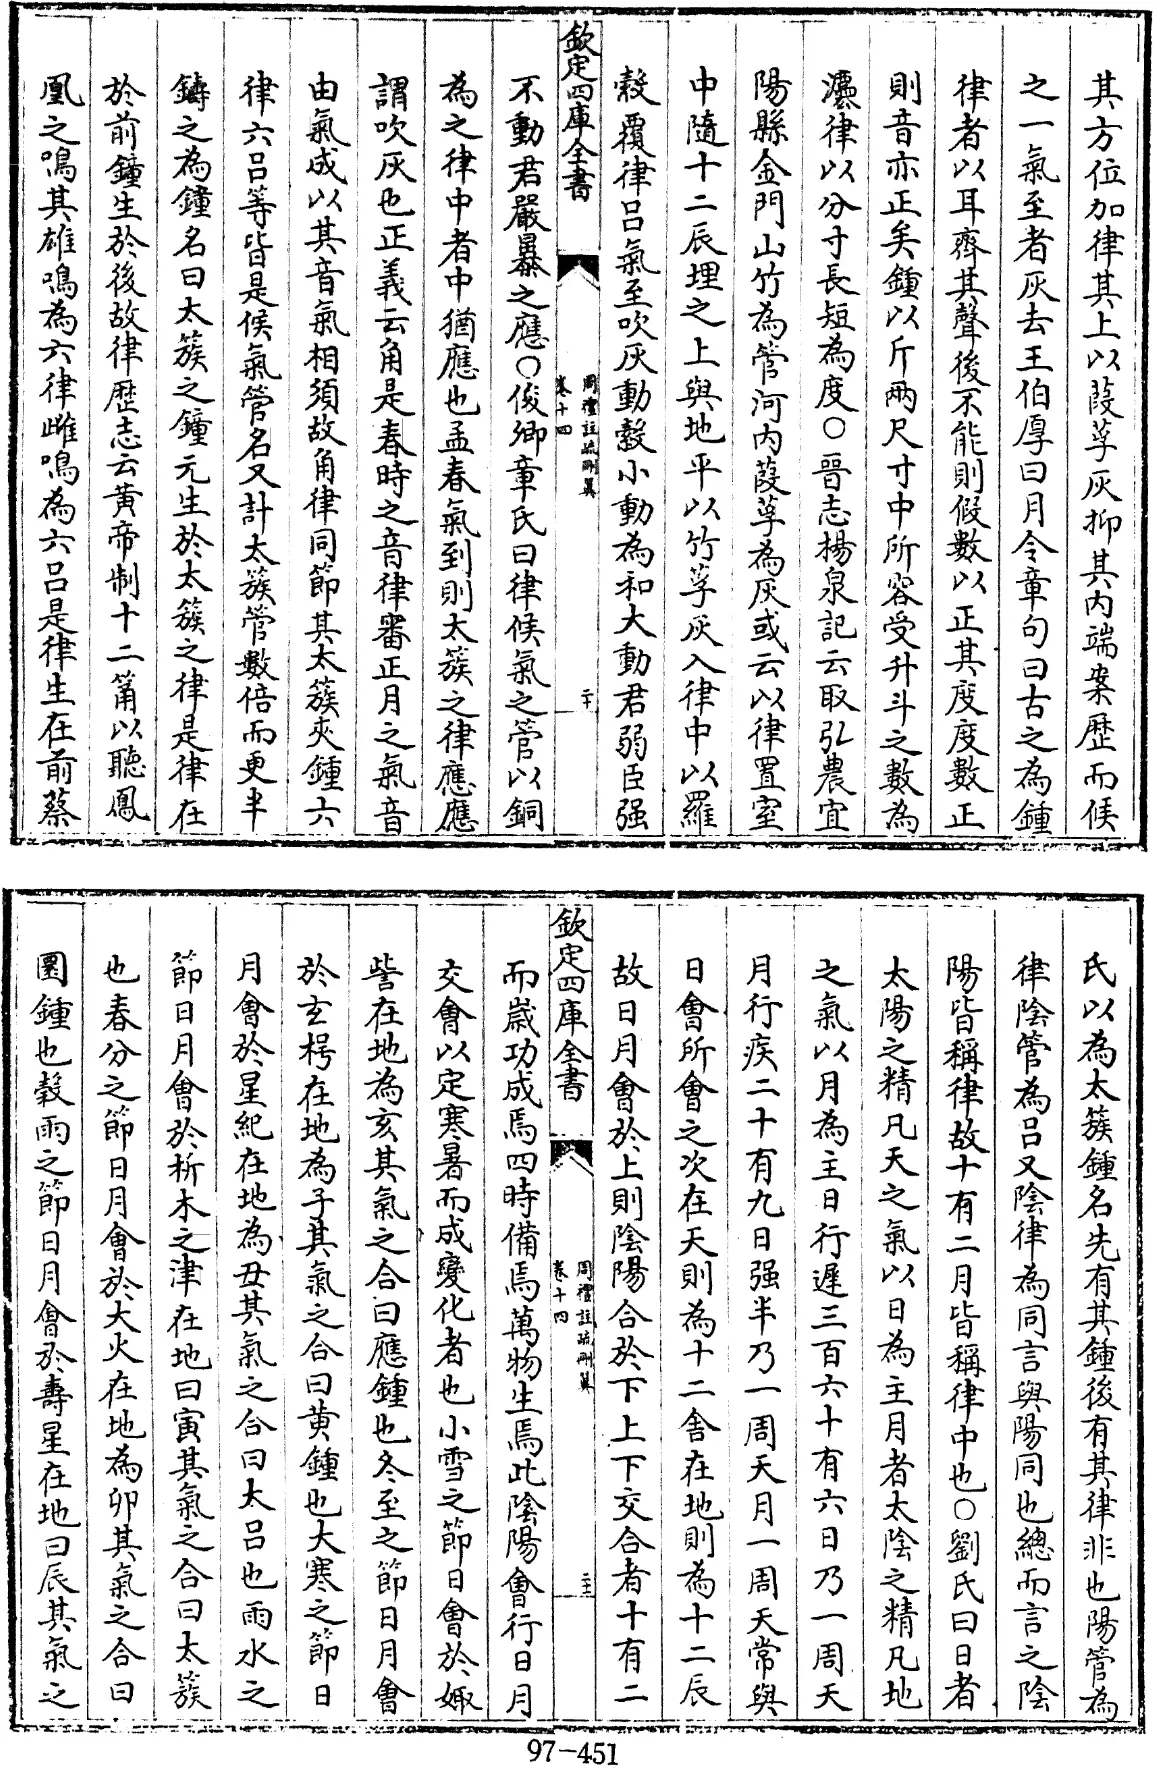 其方位加律其上以葭莩灰抑其内端案歴而候
之一氣至者灰去王伯厚曰月令章句曰古之為鍾
律者以耳齊其聲後不能則假數以正其度度數正
則音亦正矣鍾以斤兩尺寸中所容受升斗之數為
灋律以分寸長短為度○晉志楊泉記云取弘農宜
陽縣金門山竹為管河内葭莩為灰或云以律置室
中隨十二辰埋之上與地平以竹莩灰入律中以羅
縠覆律吕氣至吹灰動縠小動為和大動君弱臣强
欽定四庫全書
周禮註疏刪翼
卷十四
二十
不動君嚴暴之應○俊卿章氏曰律候氣之管以銅
為之律中者中猶應也孟春氣到則太簇之律應應
謂吹灰也正義云角是春時之音律審正月之氣音
由氣成以其音氣相須故角律同節其太簇夾鍾六
律六吕等皆是候氣管名又計太簇管數倍而更半
鑄之為鐘名曰太簇之鐘元生於太簇之律是律在
於前鐘生於後故律歴志云黄帝制十二筩以聽鳳
凰之鳴其雄鳴為六律雌鳴為六吕是律生在前蔡
氏以為太簇鍾名先有其鍾後有其律非也陽管為
律陰管為吕又陰律為同言與陽同也總而言之陰
陽皆稱律故十有二月皆稱律中也○劉氏曰日者
太陽之精凡天之氣以日為主月者太陰之精凡地
之氣以月為主日行遲三百六十有六日乃一周天
月行疾二十有九日强半乃一周天月一周天常與
日會所會之次在天則為十二舍在地則為十二辰
故日月會於上則陰陽合於下上下交合者十有二
欽定四庫全書
周禮註疏刪翼
卷十四
二十一
而嵗功成焉四時備焉萬物生焉此陰陽會行日月
交會以定寒暑而成變化者也小雪之節日會於娵
訾在地為亥其氣之合曰應鍾也冬至之節日月會
於玄枵在地為子其氣之合曰黄鍾也大寒之節日
月會於星紀在地為丑其氣之合曰大吕也雨水之
節日月會於析木之津在地曰寅其氣之合曰太簇
也春分之節日月會於大火在地為卯其氣之合曰
圜鍾也穀雨之節日月會於壽星在地曰辰其氣之
97-451